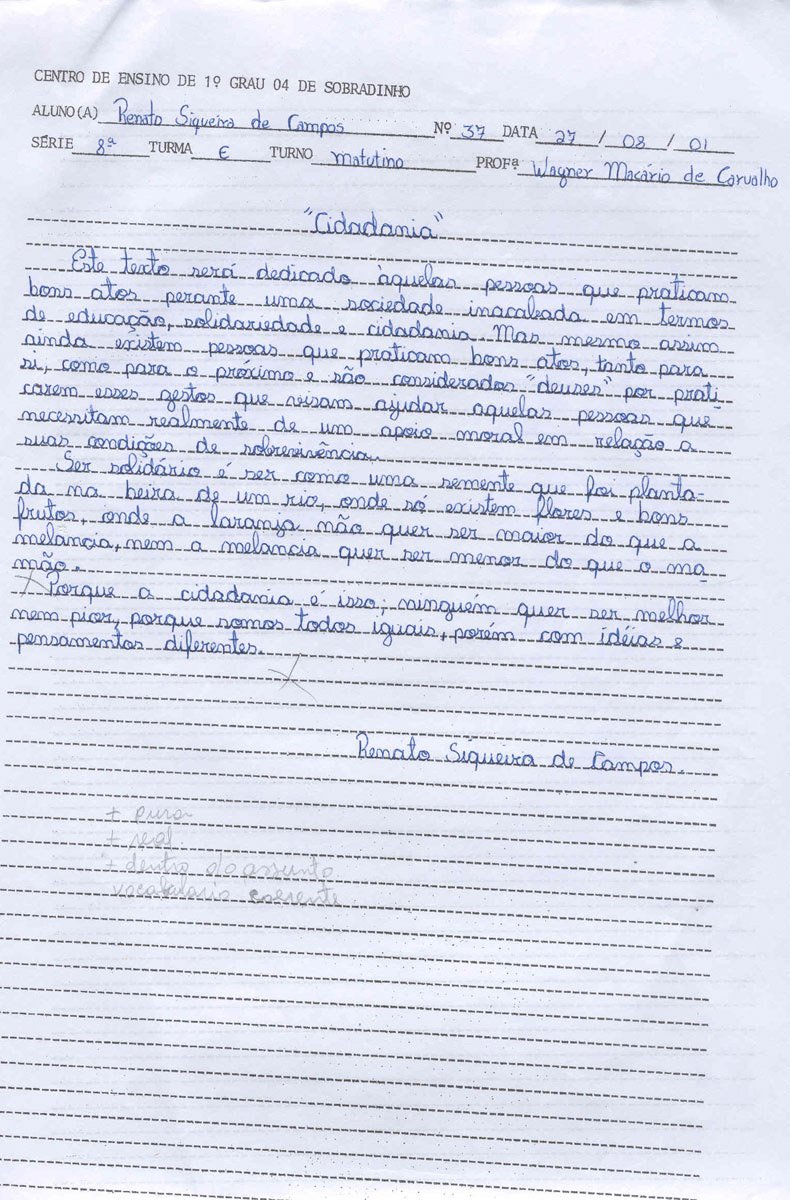 CENTRO DE ENSINO DE 1º GRAU 04 DE SOBRADINHO
ALUNO(A) Renato Siqueira de Campos Nº 37 DATA 27 / 08 / 01
SÉRIE 8ª TURMA E TURNO matutino PROFª Wagner Macário de Carvalho
"Cidadania"
Este texto será dedicado àquelas pessoas que praticam
bons atos perante uma sociedade inacabada em termos
de educação, solidariedade e cidadania. Mas mesmo assim
ainda existem pessoas que praticam bons atos, tanto para
si, como para o próximo e são considerados "deuses" por prati
carem esses gestos que visam ajudar aquelas pessoas que
necessitam realmente de um apoio moral em relação a
suas condições de sobrevivência.
Ser solidário é ser como uma semente que foi planta-
da na beira de um rio, onde só existem flores e bons
frutos, onde a laranja não quer ser maior do que a
melancia, nem a melancia quer ser menor do que o ma
mão.
Porque a cidadania é isso; ninguém quer ser melhor
nem pior, porque somos todos iguais, porém com idéias e
pensamentos diferentes.
Renato Siqueira de Campos.
+ pura
+ real
+ dentro do assunto
vocabulario coerente